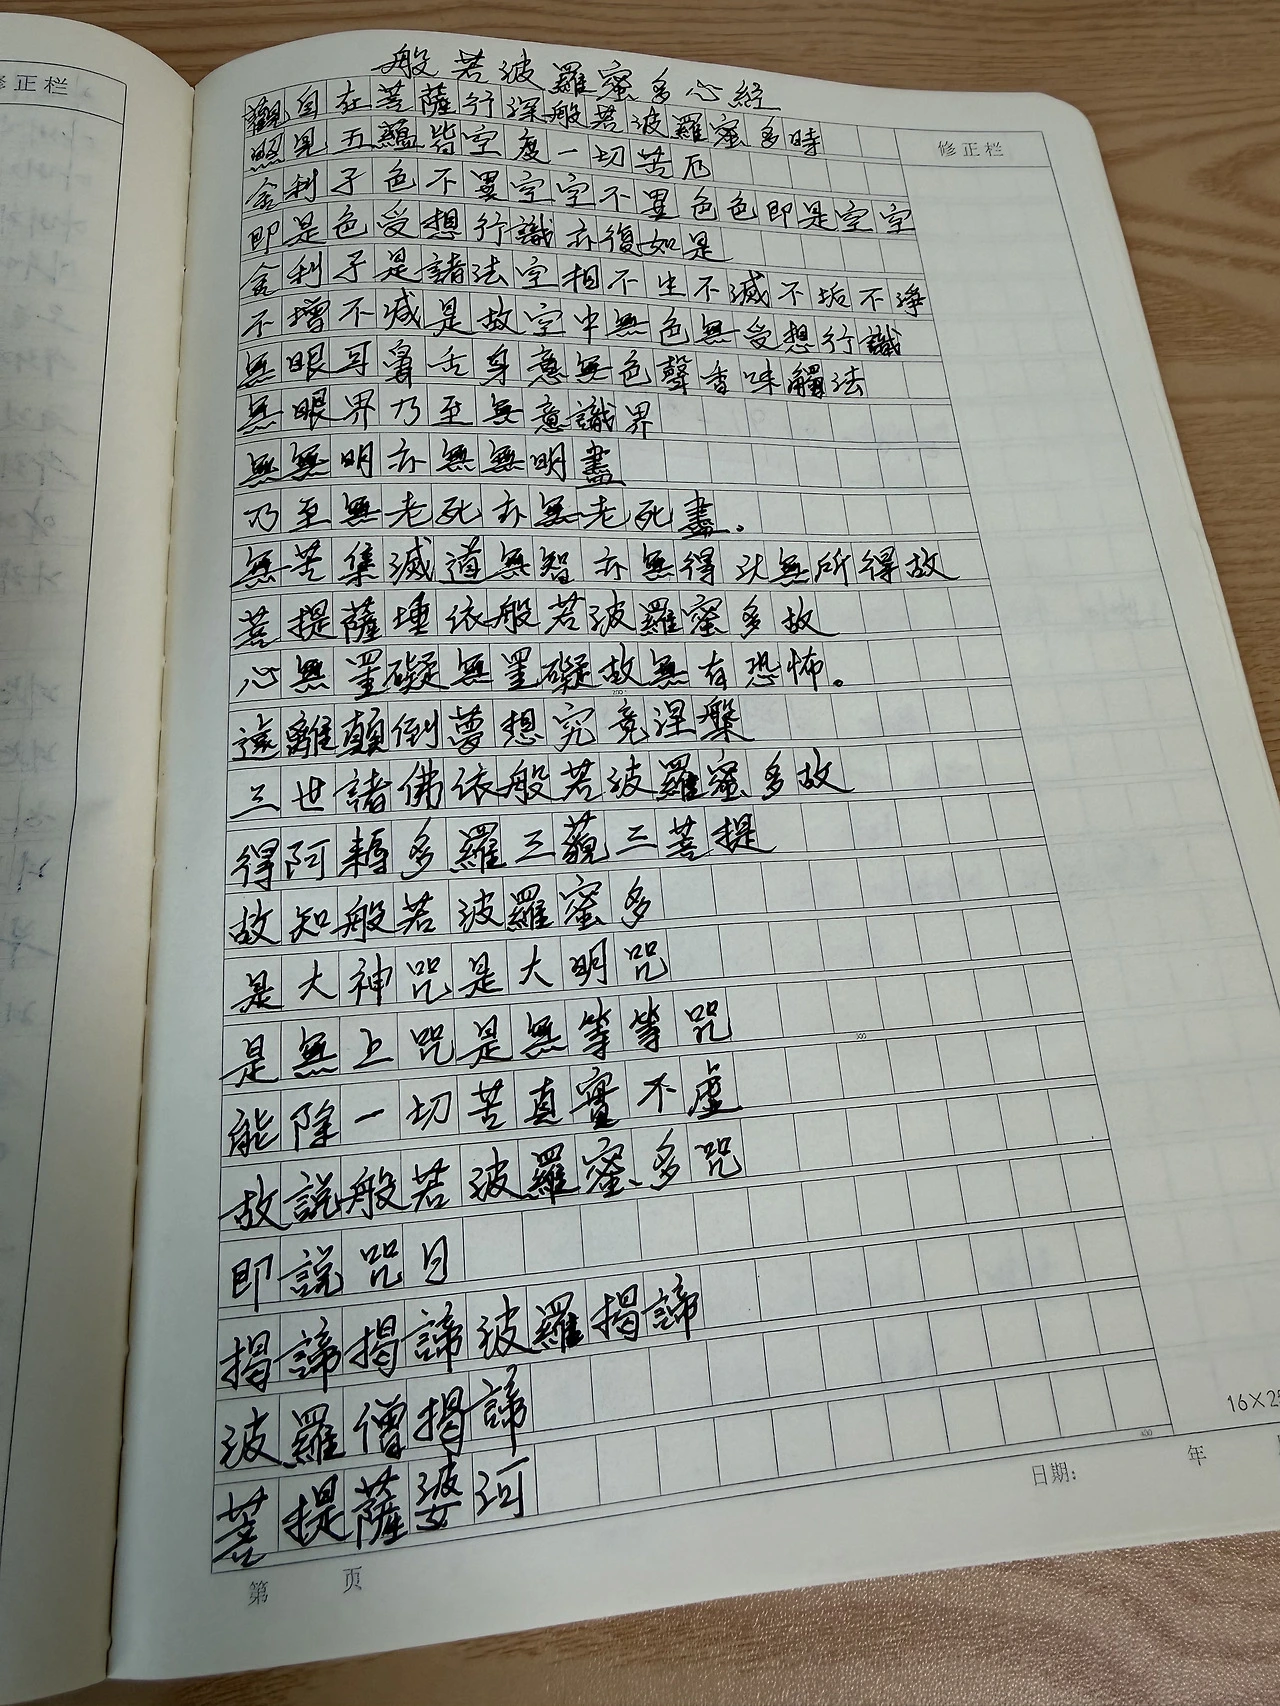 修正栏
般若波羅蜜多心經
觀自在菩薩行深般若波羅蜜多時
照見五蘊皆空度一切苦厄
修正栏
舍利子色不異空空不異色色即是空空
即是色受想行識亦復如是
舍利子是諸法空相不生不滅不垢不淨
不增不減是故空中無色無受想行識
無眼耳鼻舌身意無色聲香味觸法
無眼界乃至無意識界
無無明亦無無明盡
乃至無老死亦無老死盡。
無苦集滅道無智亦無得以無所得故
菩提薩埵依般若波羅蜜多故
心無罣礙無罣礙故無有恐怖。
200
遠離顛倒夢想究竟涅槃
三世諸佛依般若波羅蜜多故
得阿耨多羅三藐三菩提
故知般若波羅蜜多
是大神咒是大明咒
是無上咒是無等等咒
300
能除一切苦真實不虛
故說般若波羅蜜多咒
即說咒曰
揭諦揭諦波羅揭諦
波羅僧揭諦
16×25
400
菩提薩婆訶
日期: 年
第 页